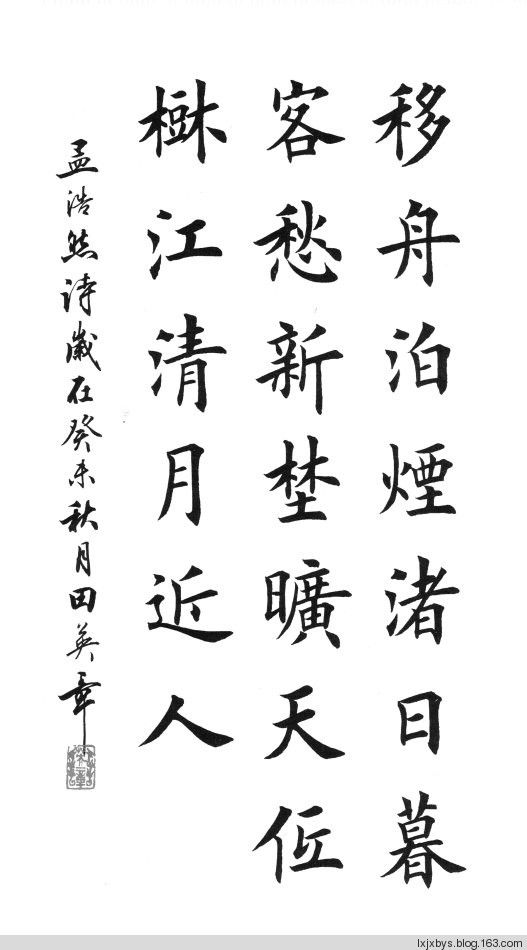 移舟泊煙渚日暮
客愁新埜曠天低
樹江清月近人
孟浩然诗歲在癸未秋月田英章
lxjxbys.blog.163.com